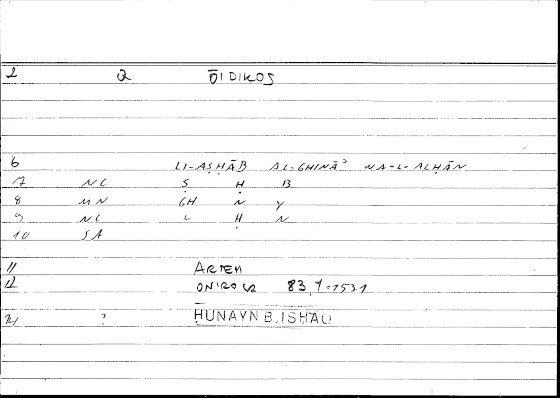 2 2 ὨIDIKOS
6 LI-AṢḤĀB AL-GHINĀʾ WA-L-ALḤĀN
7 NC Ṣ Ḥ B
8 MN GH N Y
9 NC L Ḥ N
10 SA
11 ARTEM
12 ONIROCR 83,9.1531
14 ? ḤUNAYN B. ISḤĀQ